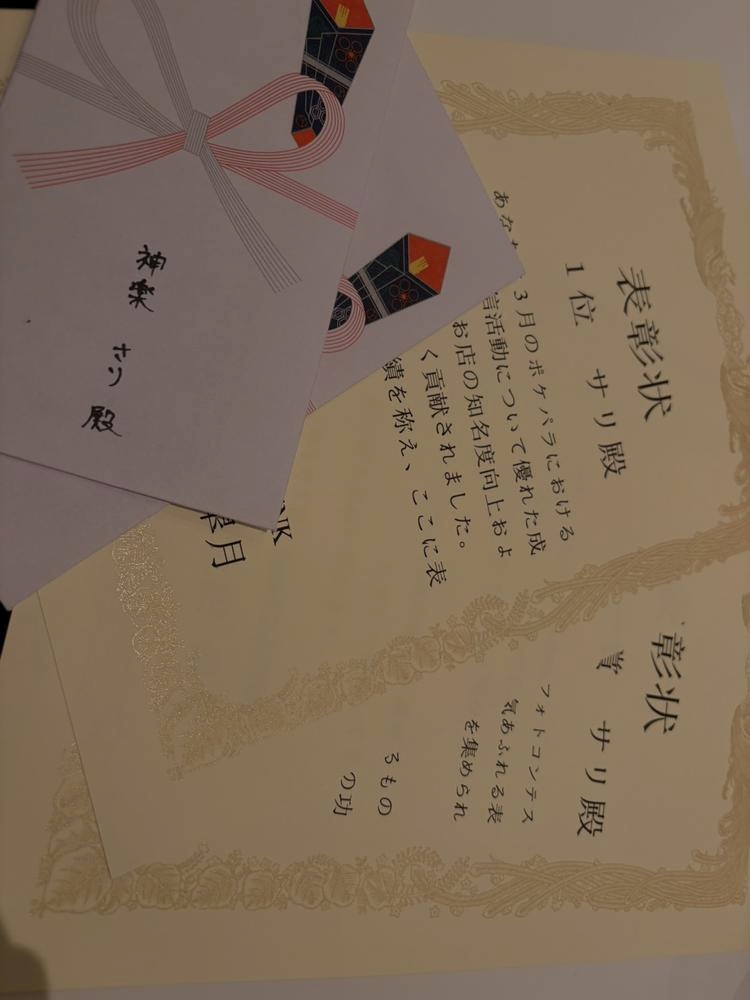 神楽 さり 殿
表彰状
1位 サリ殿
あな
3月のポケパラにおける
言活動について優れた成
お店の知名度向上およ
く貢献されました。
績を称え、ここに表
NK
月
彰状
賞 サリ殿
フォトコンテス
気あふれる表
を集められ
るもの
の功